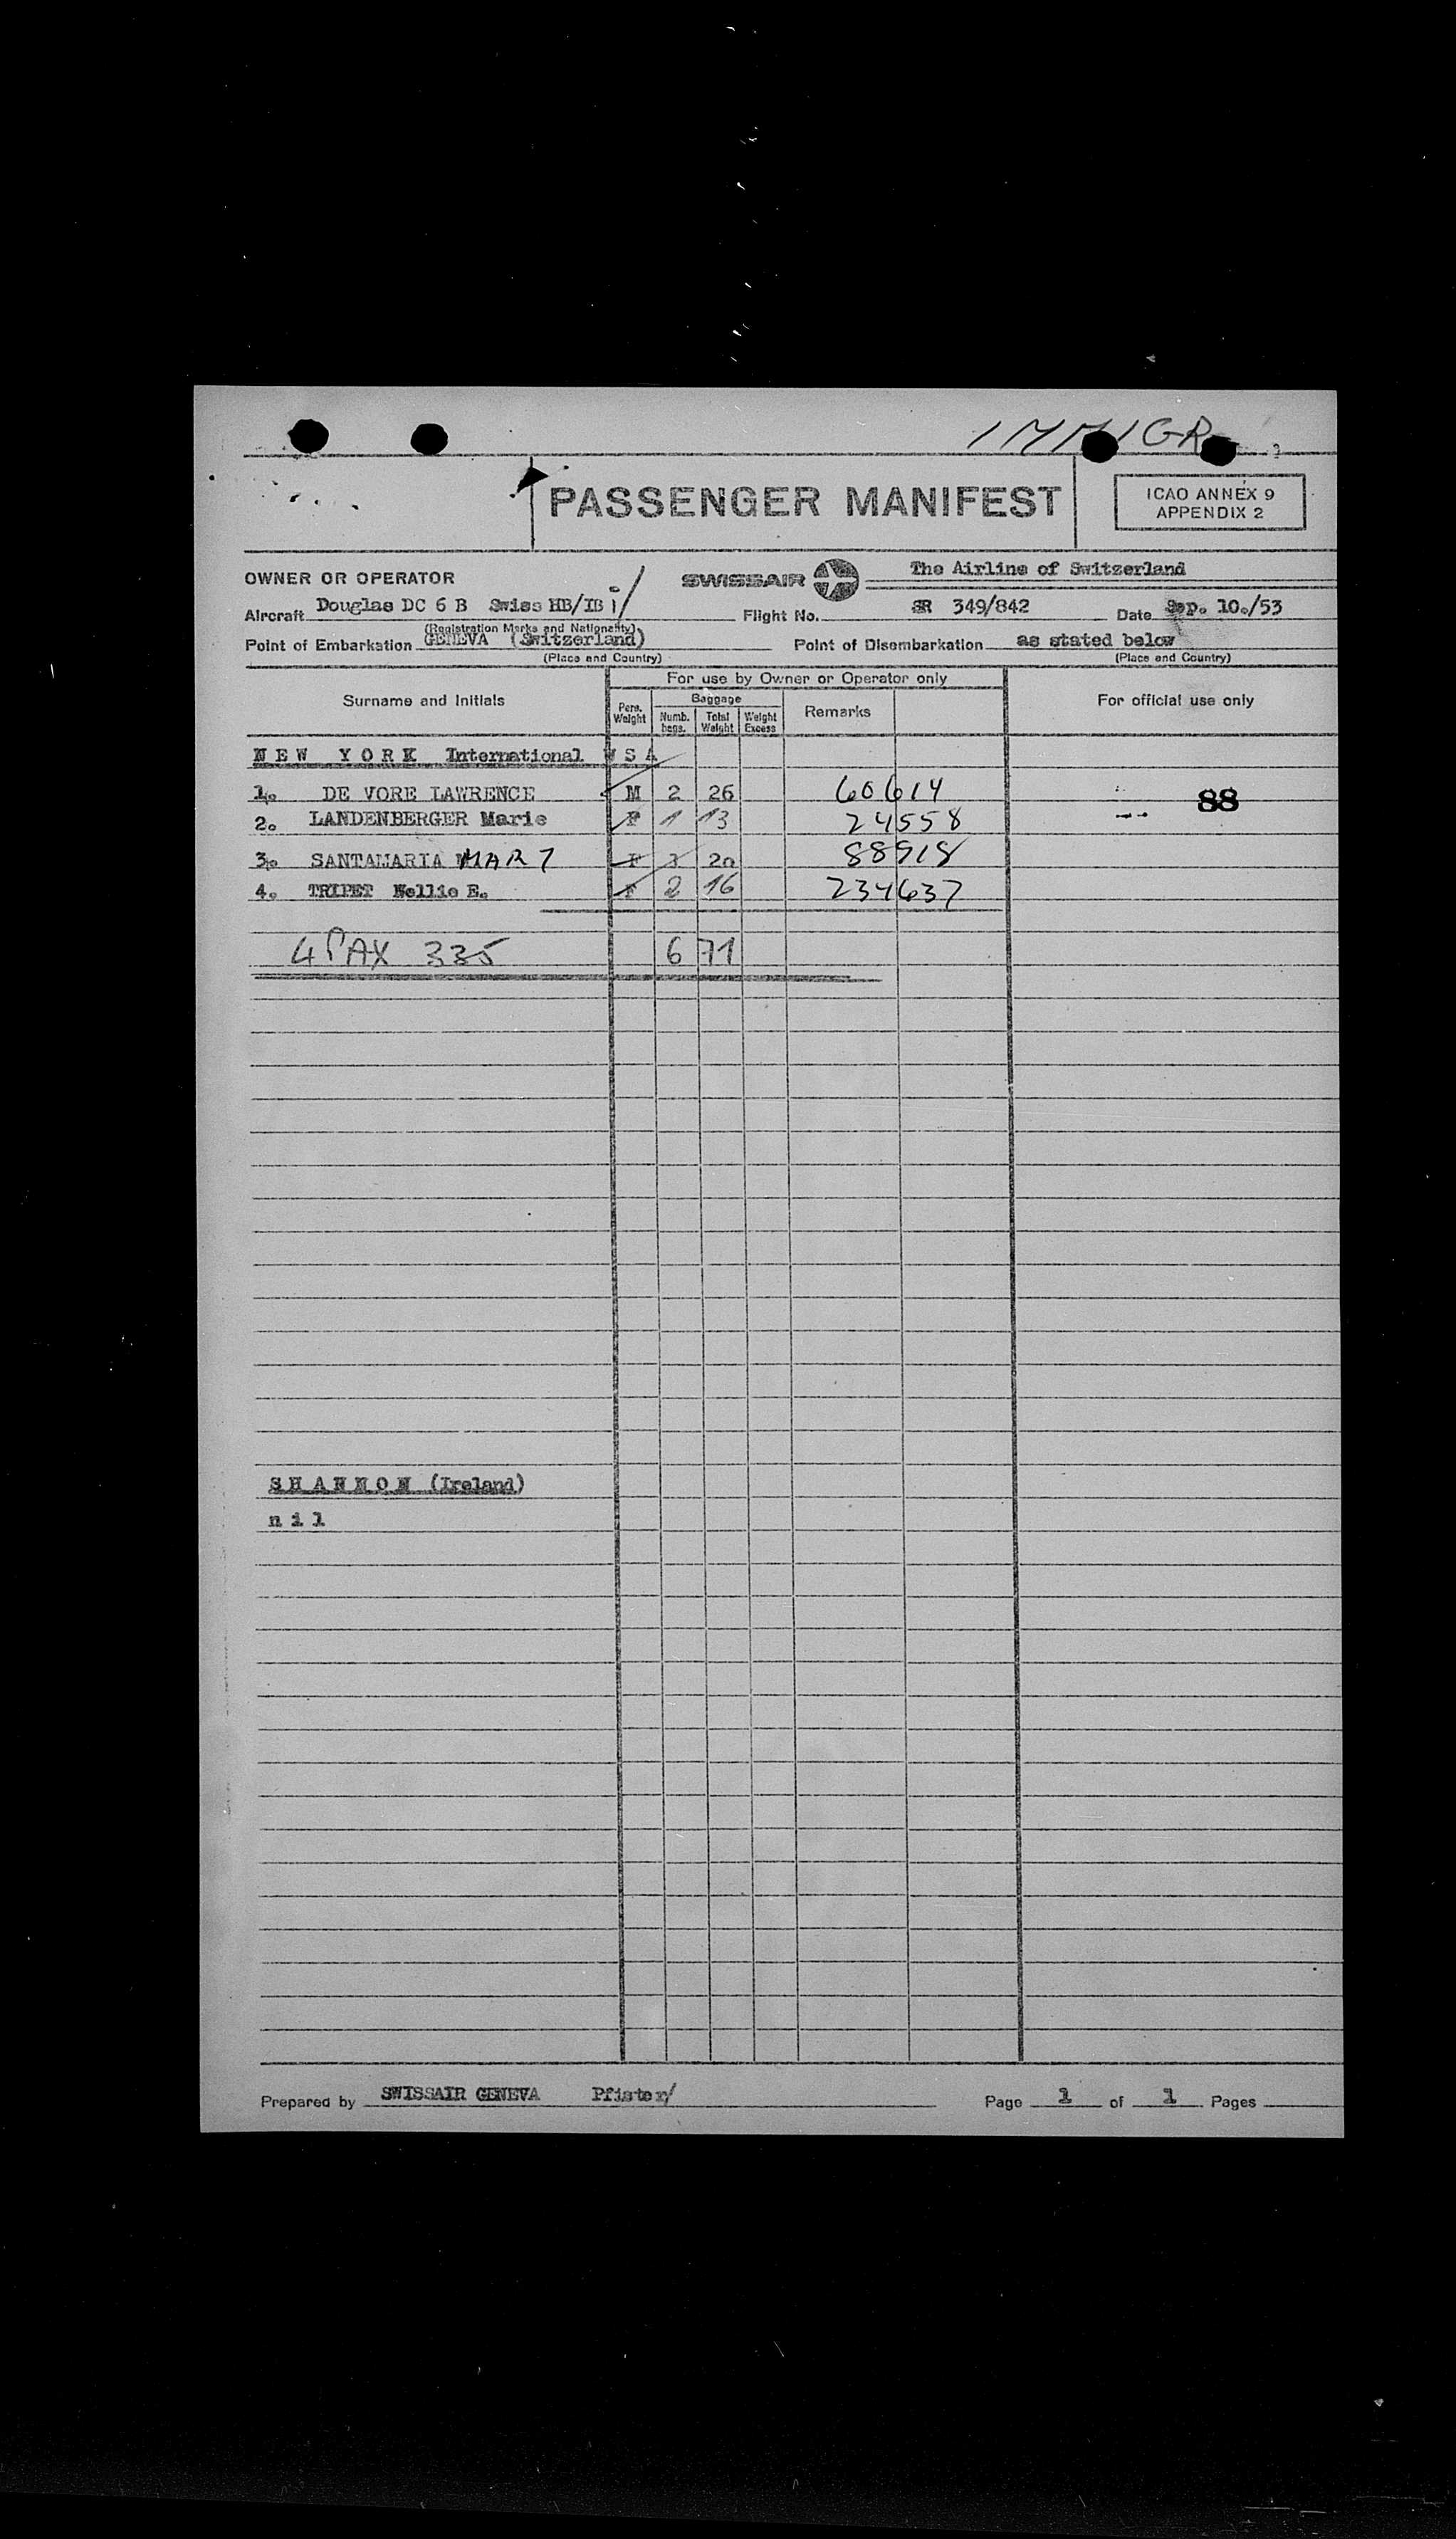 IMMIGR
PASSENGER MANIFEST
ICAO ANNEX 9
APPENDIX 2
OWNER OR OPERATOR
SWISSAIR
The Airline of Switzerland
Aircraft Douglas DC 6 B Swiss HB/IB i/ Flight No. SR 349/842 Date Sep. 10./53
(Registration Marks and Nationality)
Point of Embarkation GENEVA (Switzerland) Point of Disembarkation as stated below
(Place and Country) (Place and Country)
For use by Owner or Operator only
Surname and Initials Pers. Weight Baggage Remarks For official use only
Numb. bags. Total Weight Weight Excess
N E W Y O R K International U S A
1. DE VORE LAWRENCE M 2 26 60614 88
2. LANDENBERGER Marie F 1 13 24558
3. SANTAMARIA F 20 88918
4. TRIPET Nellie E. F 2 16 234637
4 PAX 335 6 71
S H A N N O N (Ireland)
n i l
Prepared by SWISSAIR GENEVA Pfister/ Page 1 of 1 Pages